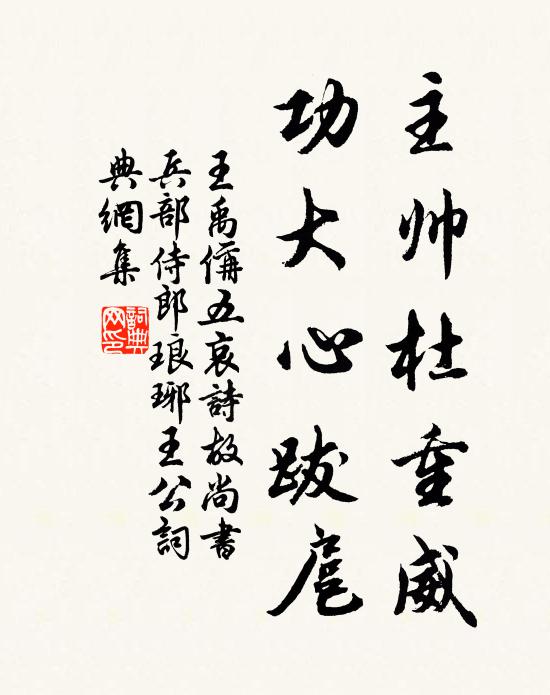 主帅杜重威
功大心跋扈
王禹偁五哀詩故尚書
兵部侍郎琅琊王公詞
典網集
詞典网印